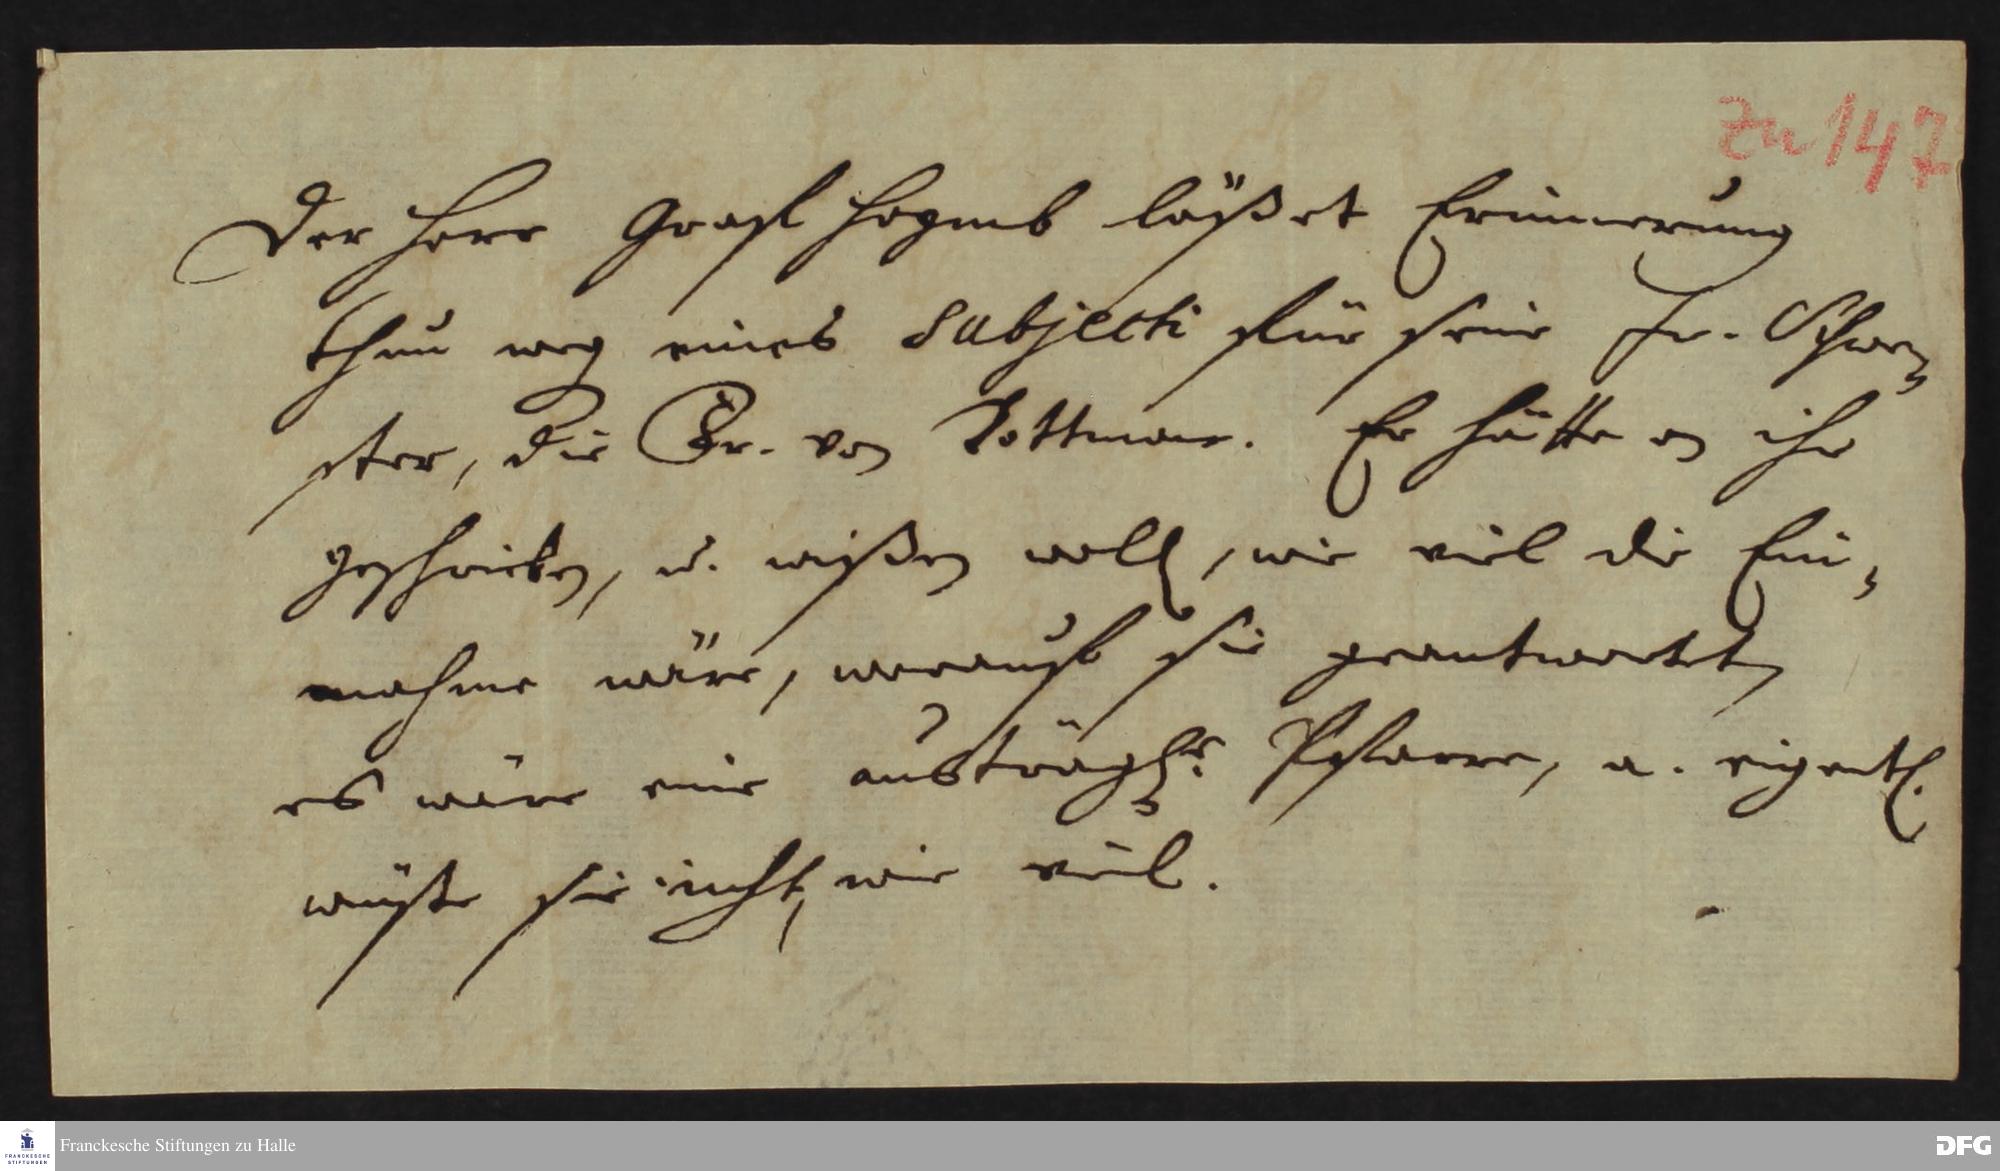 zu 147
Der Herr Graff läßet Erinnerung
thun weg eines Subjecti für seine Fr. Schwe,
ster, die Gr. von Er hätte an ihr
geschrieben, u. wißen woll, wie viel die Ein,
nahme wäre, worauf sie geantwortet,
es wäre eine austrägl. Pfarre, a. eigentl.
wüste sie nicht, wie viel.
Franckesche Stiftungen zu Halle
FRANCKESCHE
STIFTUNGEN
DFG